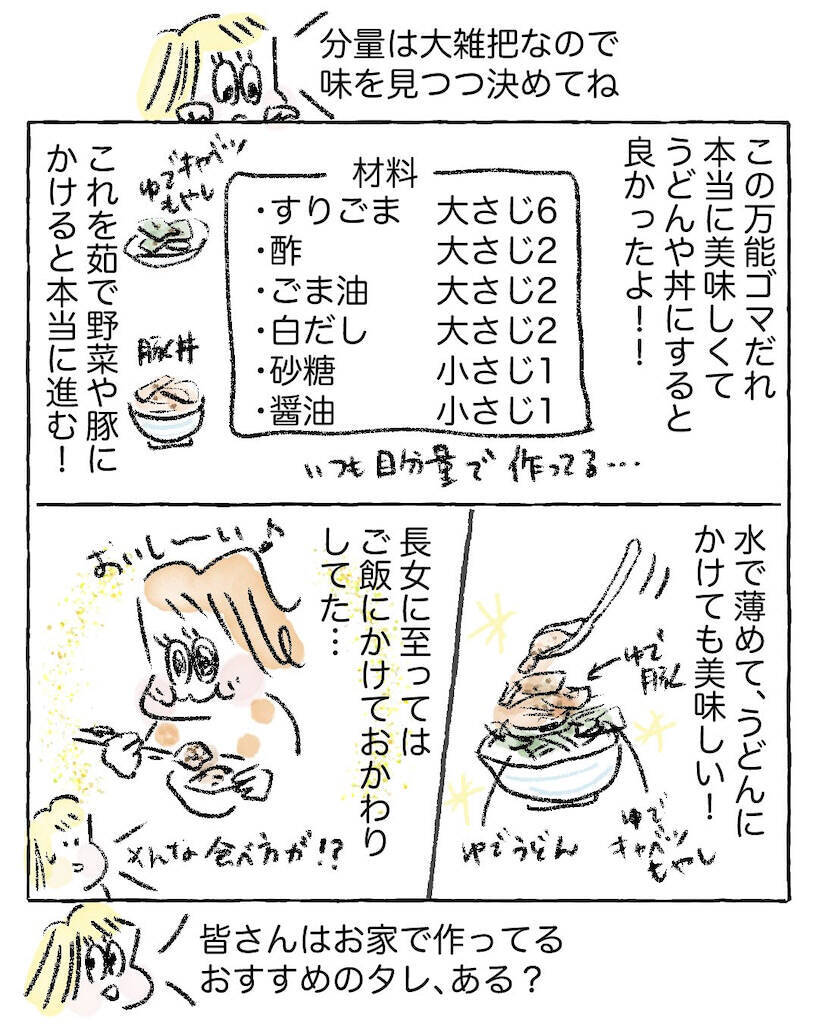 分量は大雑把なので
味を見つつ決めてね
この万能ゴマだれ
本当に美味しくて
うどんや丼にすると
良かったよ！！
材料
・すりごま　大さじ6
・酢　大さじ2
・ごま油　大さじ2
・白だし　大さじ2
・砂糖　小さじ1
・醤油　小さじ1
いつも目分量で作ってる…
ゆでキャベツ
もやし
豚丼
これを茹で野菜や豚に
かけると本当に進む！
水で薄めて、うどんに
かけても美味しい！
←ゆで
豚
ゆでうどん
ゆで
キャベツ
もやし
長女に至っては
ご飯にかけておかわり
してた…
おいし〜い♪
そんな食べ方が!?
皆さんはお家で作ってる
おすすめのタレ、ある？